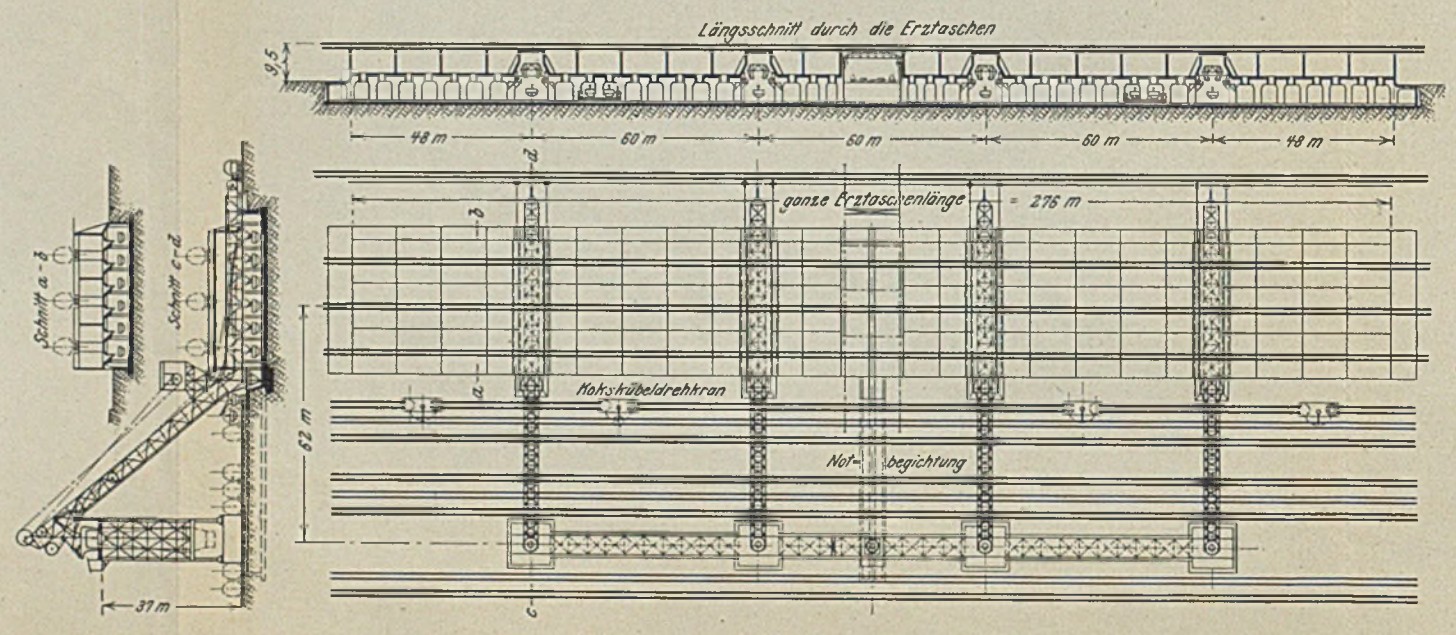 Längsschnitt durch die Erztaschen
9,5
48 m
60 m
60 m
60 m
48 m
d
ganze Erztaschenlänge = 276 m
b
Schnitt a-b
Schnitt c-d
a
Kokskübeldrehkran
62 m
Not-begichtung
37 m
c